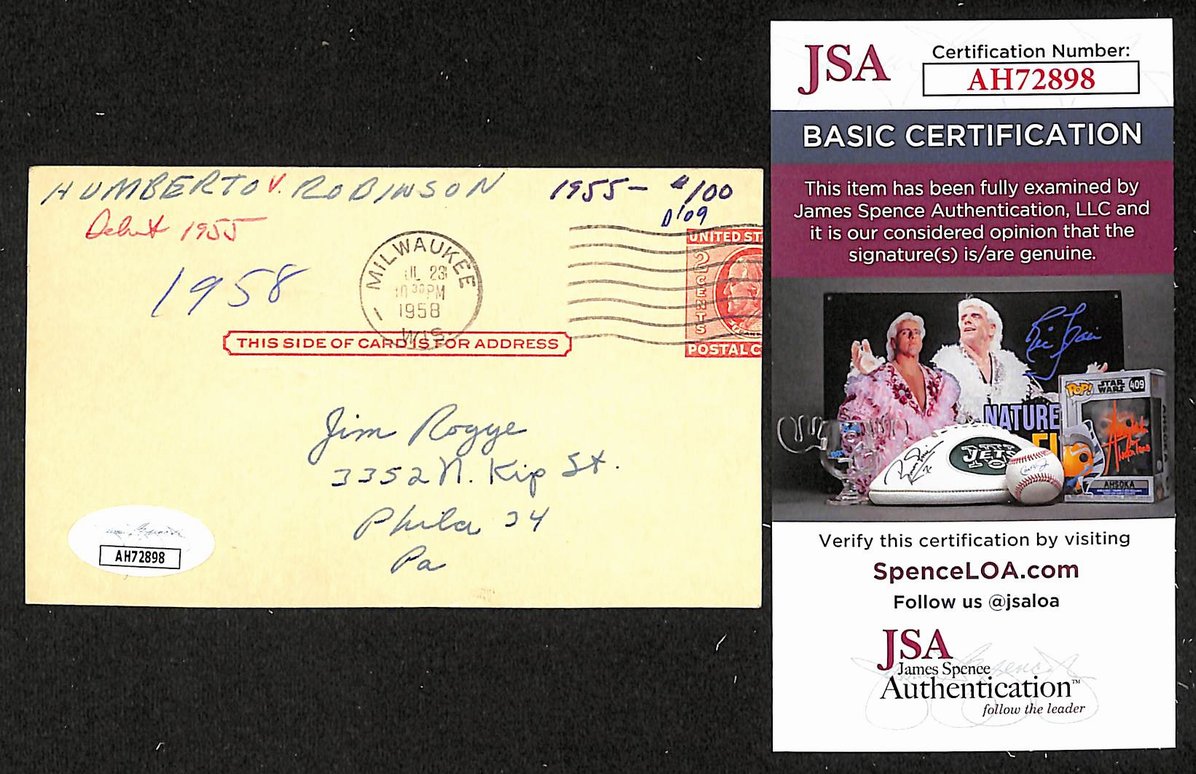 HUMBERTO V. ROBINSON 1955- #100
D'09
Debut 1955
1958
MILWAUKEE
JUL 23
10 30 PM
1958
WIS.
UNITED ST
2 CENTS
POSTAL C
THIS SIDE OF CARD IS FOR ADDRESS
Jim Rogye
3352 N. Kip St.
Phila 34
Pa
AH72898
JSA
Certification Number:
AH72898
BASIC CERTIFICATION
This item has been fully examined by
James Spence Authentication, LLC and
it is our considered opinion that the
signature(s) is/are genuine.
NATURE
POP! STAR WARS 409
JETS
AHSOKA
Verify this certification by visiting
SpenceLOA.com
Follow us @jsaloa
JSA
James Spence
Authentication™
follow the leader